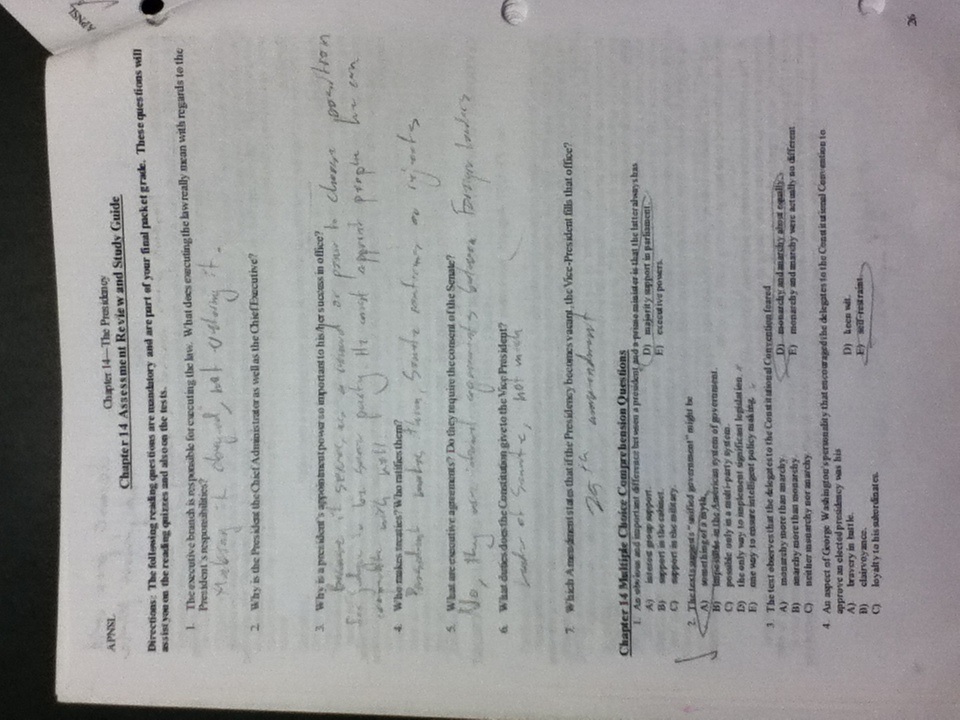 APNSL
Chapter 14—The Presidency
APNSL
Chapter 14 Assessment Review and Study Guide
Directions: The following reading questions are mandatory and are part of your final packet grade. These questions will
assist you on the reading quizzes and also on the tests.
1. The executive branch is responsible for executing the law. What does executing the law really mean with regards to the
President's responsibilities?
Making it obeyed, not it.
2. Why is the President the Chief Administrator as well as the Chief Executive?
3. Why is a president's appointment power so important to his/her success in office?
Because it serves as a reward or power to choose position
for judges to be same party. He must appoint people he can
with well.
4. Who makes treaties? Who ratifies them?
President makes them, Senate confirms or rejects
5. What are executive agreements? Do they require the consent of the Senate?
No, they are agreements between Foreign leaders
6. What duties does the Constitution give to the Vice President?
Leader of Senate, not much
7. Which Amendment states that if the Presidency becomes vacant, the Vice-President fills that office?
25th ammendment
Chapter 14 Multiple Choice Comprehension Questions
1. An obvious and important difference between a president and a prime minister is that the latter always has
A) interest group support.
D) majority support in parliament.
B) support in the cabinet.
E) executive powers.
C) support in the military.
2. The texts suggests "unified government" might be
A) something of a myth.
B) impossible in the American system of government.
C) possible only in a multi-party system.
D) the only way to implement significant legislation.
E) one way to ensure intelligent policy making.
3. The text observes that the delegates to the Constitutional Convention feared
A) monarchy more than anarchy.
D) monarchy and anarchy about equally.
B) anarchy more than monarchy.
E) monarchy and anarchy were actually no different.
C) neither monarchy nor anarchy.
4. An aspect of George Washington's personality that encouraged the delegates to the Constitutional Convention to
approve an elected presidency was his
A) bravery in battle.
D) keen wit.
B) clairvoyance.
E) self-restraint.
C) loyalty to his subordinates.
26